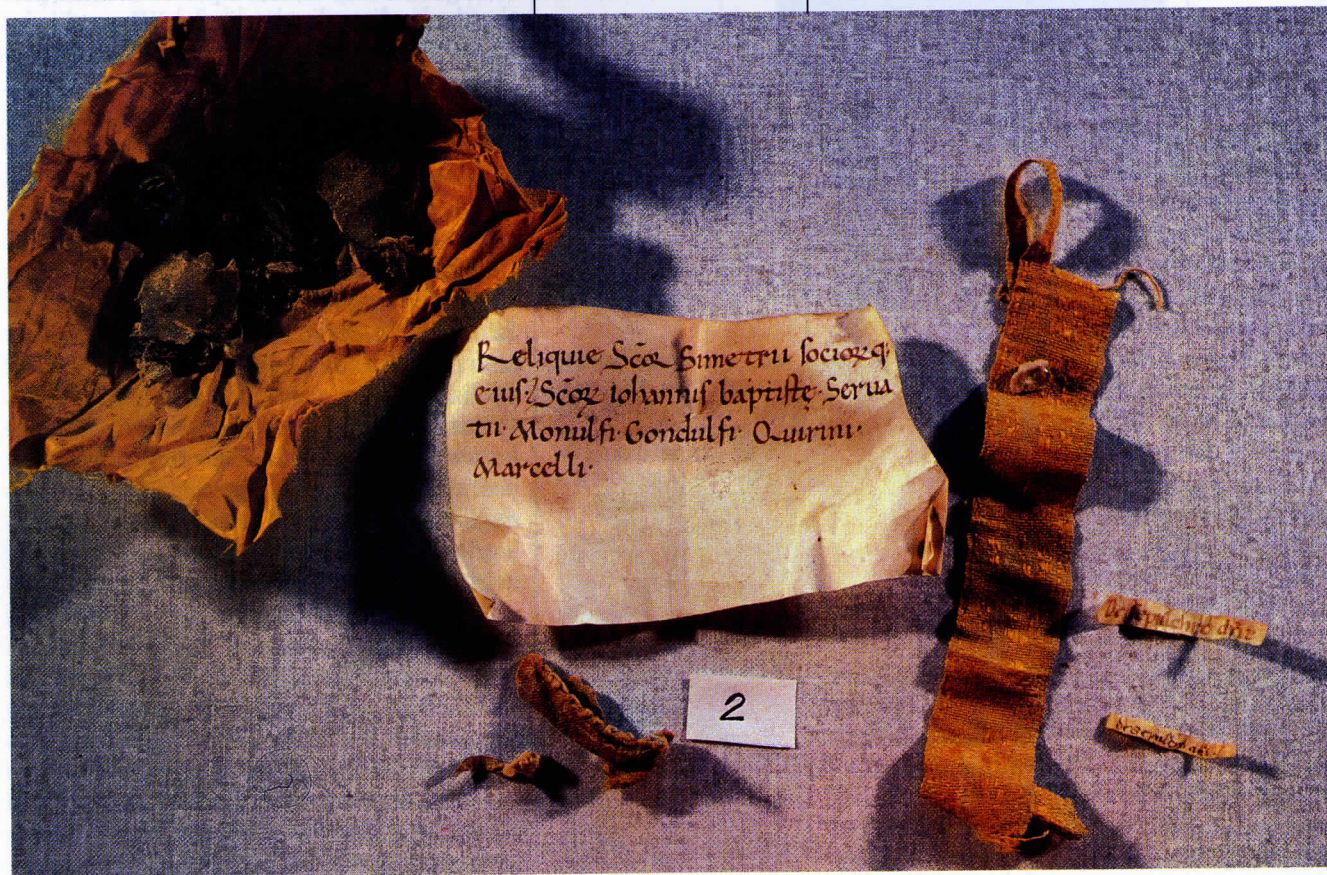 Reliquie Scōꝝ Simetrii socioꝝq;
eiusꝫ Scōꝝ Iohannis baptistę· Serua
tii· Monulfi· Gondulfi· Quirini·
Marcelli·
2
De sepulchro dn̄i